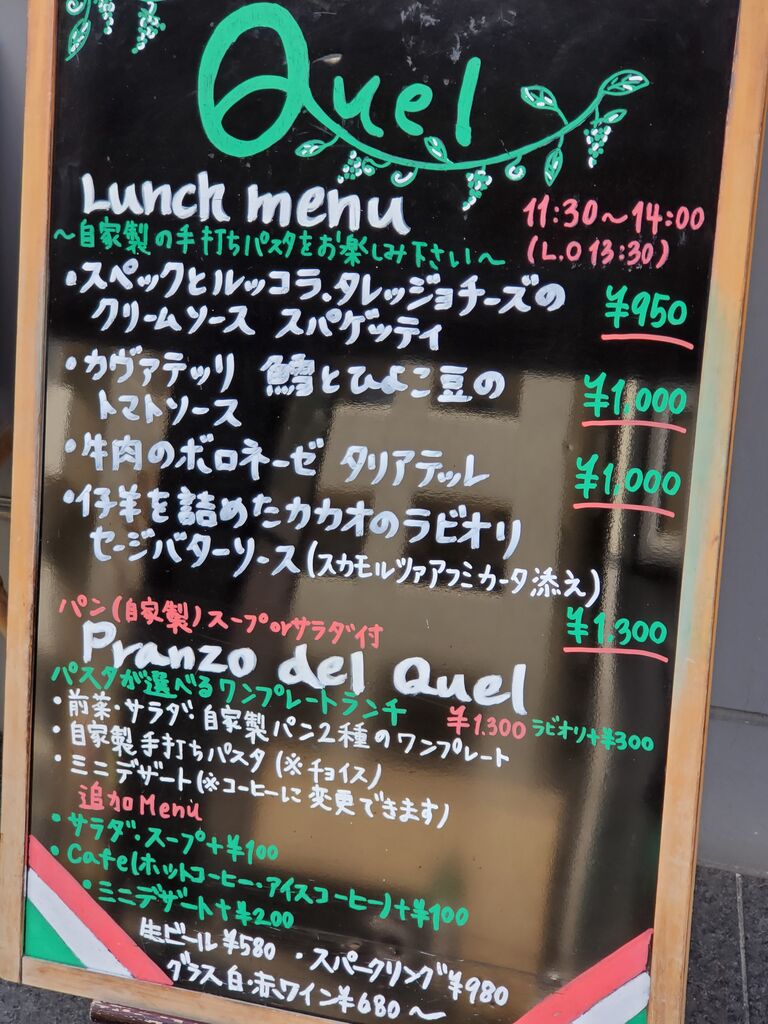 Quel
Lunch menu
11:30〜14:00
(L.O 13:30)
〜自家製の手打ちパスタをお楽しみ下さい〜
・スペックとルッコラ、タレッジョチーズの
クリームソース スパゲッティ
¥950
・カヴァテッリ 鱈とひよこ豆の
トマトソース
¥1.000
・牛肉のボロネーゼ タリアテッレ
¥1.000
・仔羊を詰めたカカオのラビオリ
セージバターソース(スカモルツァアフミカータ添え)
¥1.300
パン(自家製)スープorサラダ付
Pranzo del Quel
パスタが選べるワンプレートランチ
¥1.300 ラビオリ+¥300
・前菜・サラダ・自家製パン2種のワンプレート
・自家製手打ちパスタ(※チョイス)
・ミニデザート(※コーヒーに変更できます)
追加Menu
・サラダ・スープ+¥100
・Cafe(ホットコーヒー・アイスコーヒー)+¥100
・ミニデザート+¥200
生ビール¥580 ・スパークリング¥980
グラス白・赤ワイン¥680〜